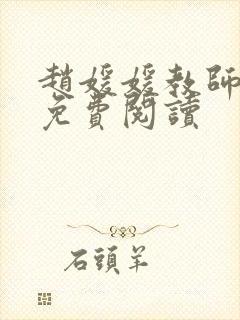 趙媛媛教師
免費閱讀
石頭羊